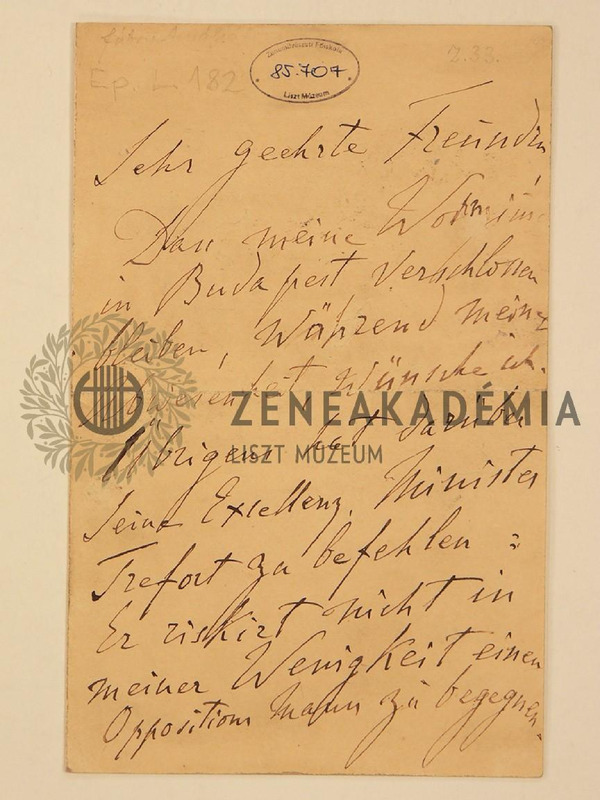 2.33.
Ep. L. 182
Zeneművészeti Főiskola
85.707
Liszt Múzeum
Sehr geehrte Freundin,
Dass meine
in Budapest verschlossen
bleiben, während meiner
wünsche ich.
Übrigens hat darüber
Seine Excellenz, Minister
Trefort zu befehlen :
Er riskirt nicht in
meiner Wenigkeit einen
Oppositions Mann zu begegnen.
ZENEAKADÉMIA
LISZT MÚZEUM